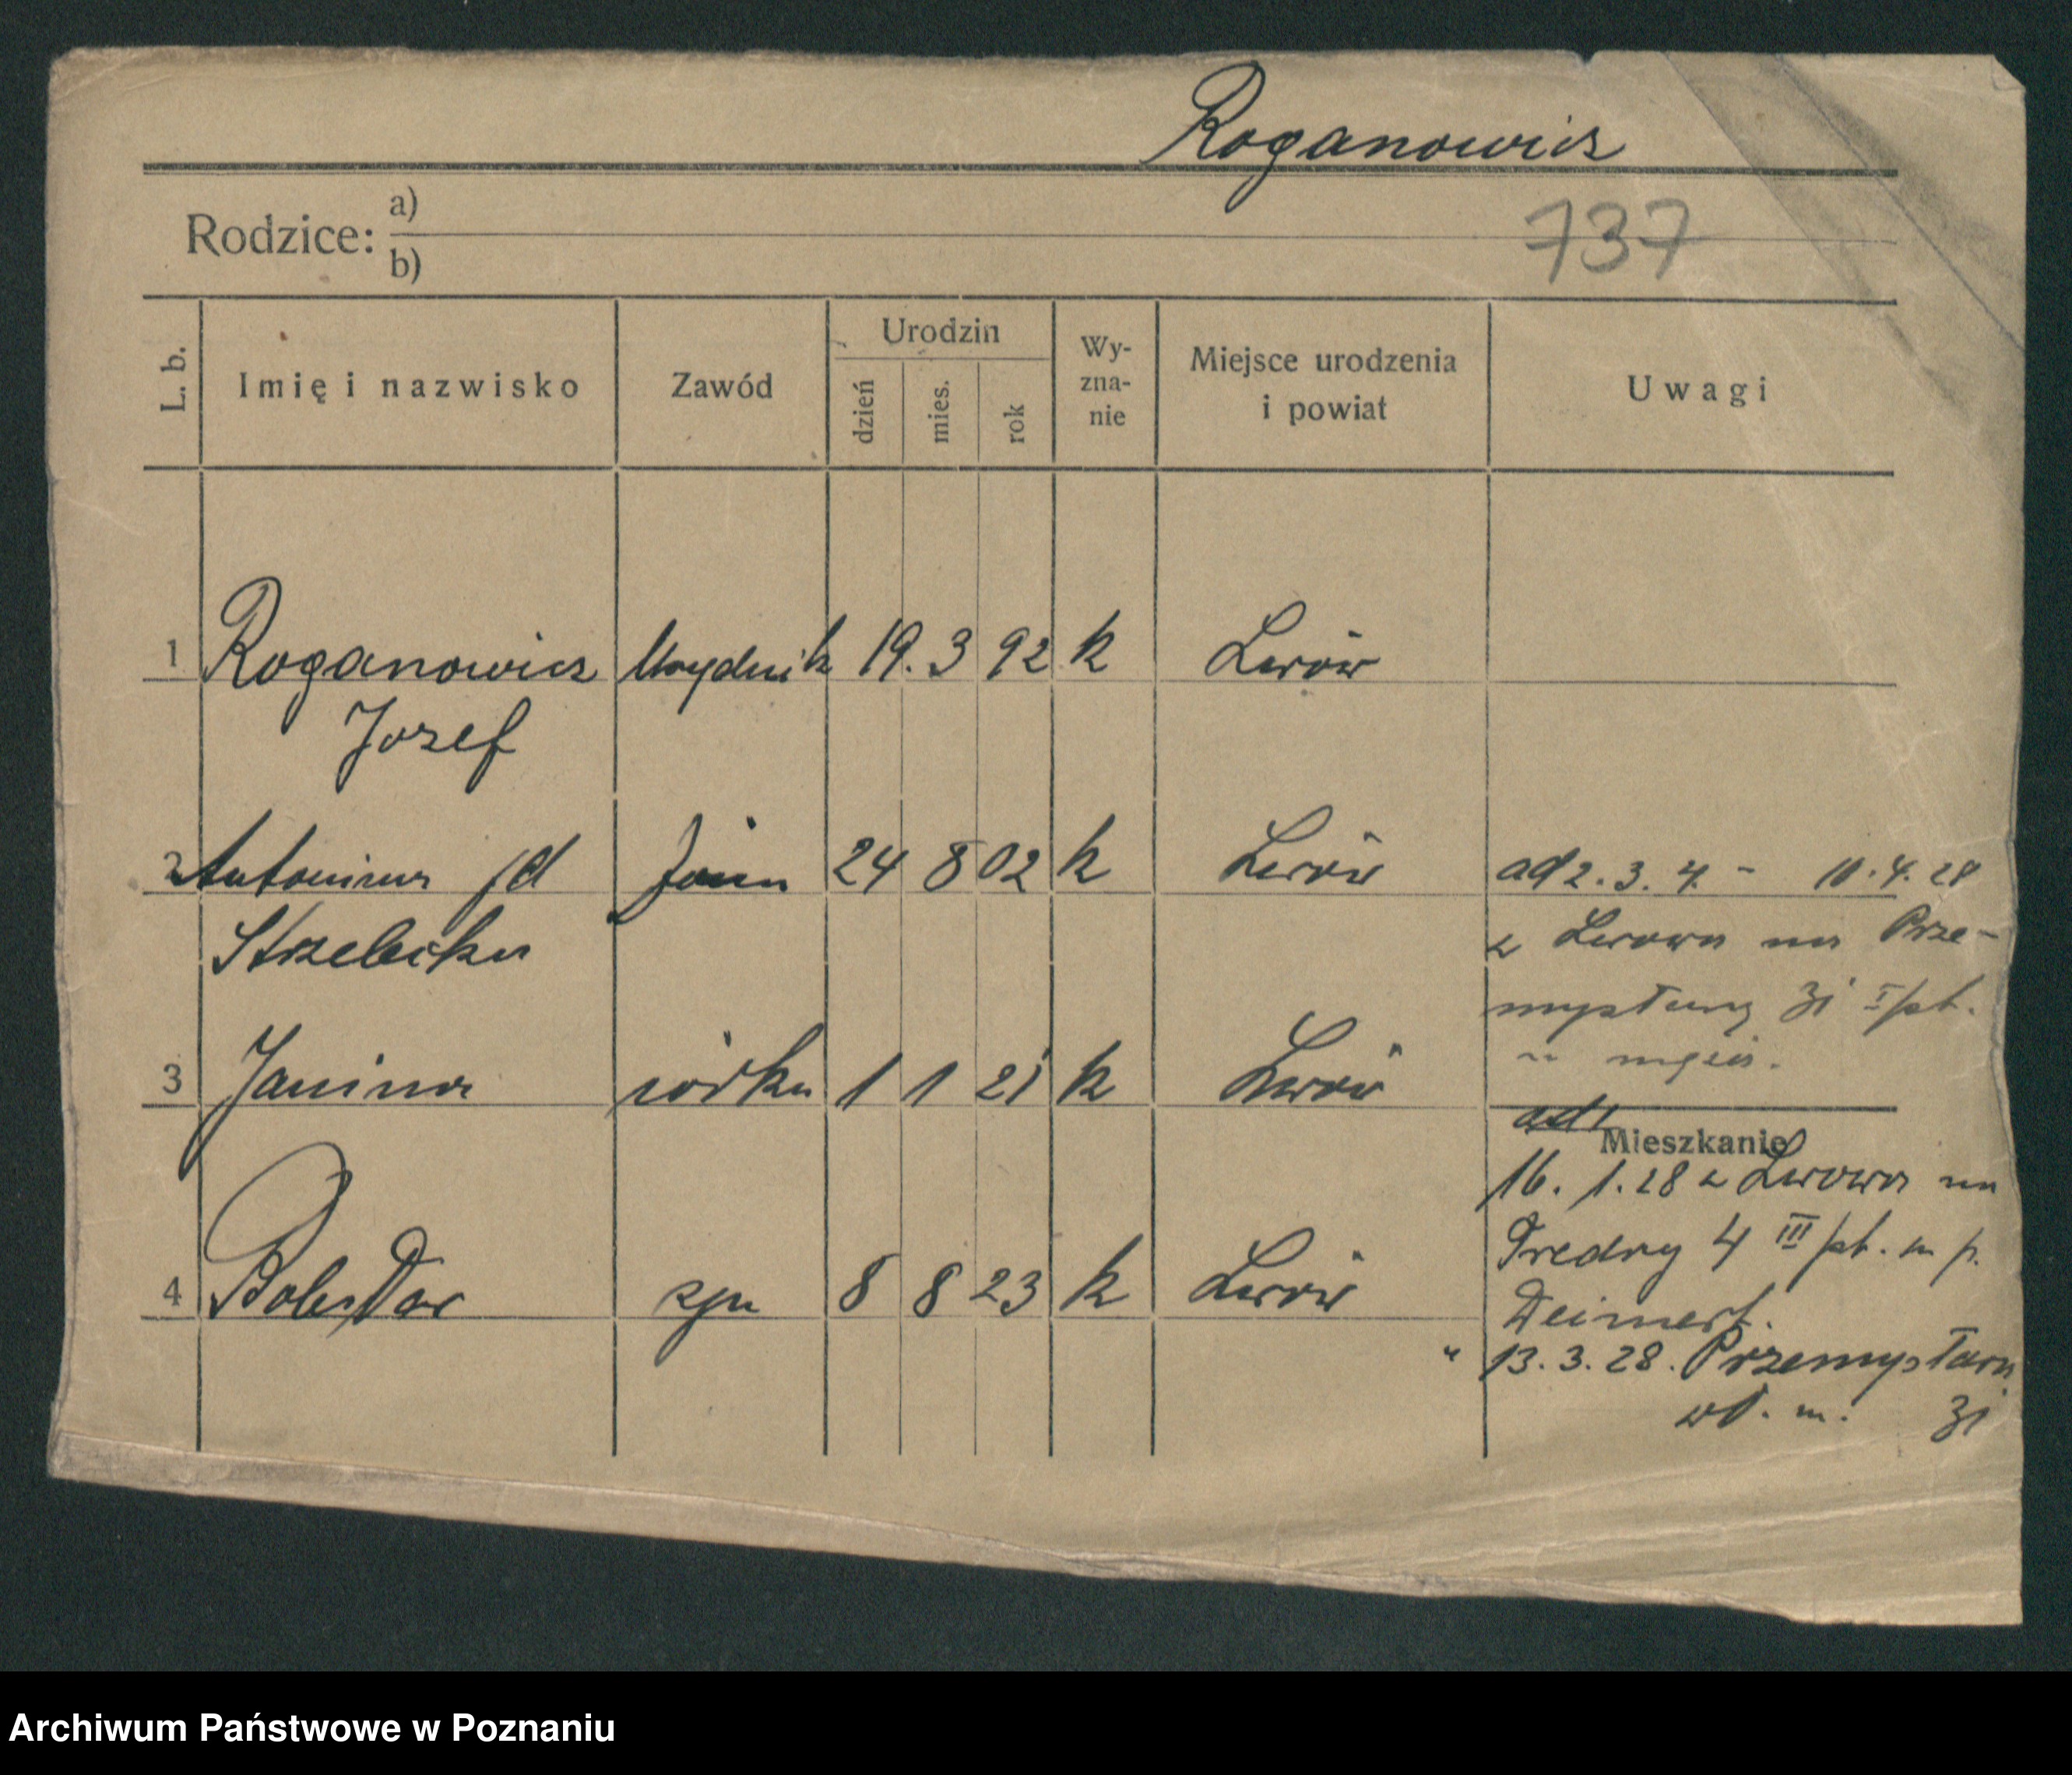 Roganowicz
Rodzice: a)
b)
737
L. b.
Imię i nazwisko
Zawód
Urodzin
dzień
mies.
rok
Wy-
zna-
nie
Miejsce urodzenia
i powiat
Uwagi
1 Roganowicz Urzędnik 19. 3 92 k Lwów
Jozef
2 Antonina 24 8 02 k Lwów ad 2. 3. 4. - 10. 4. 28
Strzelecka
z Lwowa na Prze-
mysłową 31 I pt.
u męża.
3 Janina córka 1 1 21 k Lwów
ad 1
Mieszkanie
16. 1. 28 z Lwowa na
Fredry 4 III pt. u p.
Deimert.
4 Bolesław syn 8 8 23 k Lwów
" 13. 3. 28. Przemysłowa
wł. m. 31
Archiwum Państwowe w Poznaniu